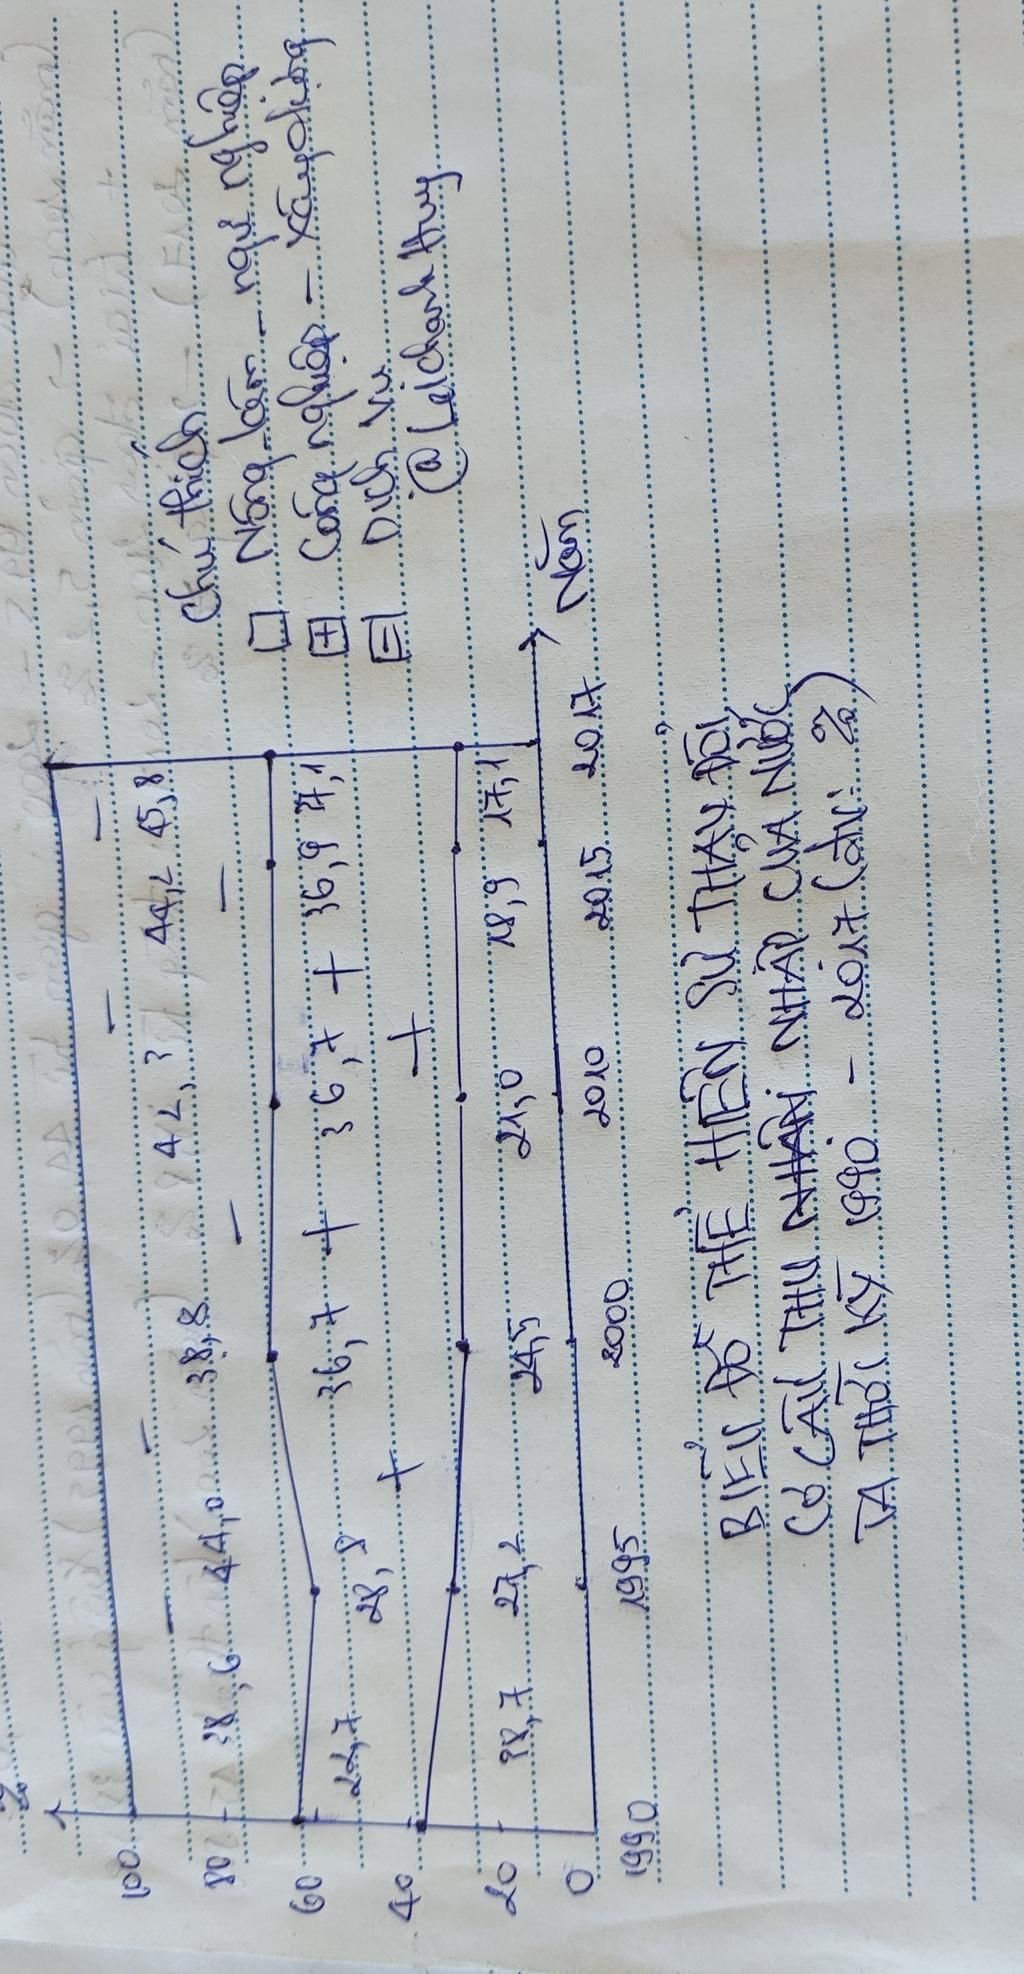 %
100
80
60
40
20
0
38,6 44,0 38,8 42,3 44,2 45,8
22,7 28,8 36,7 36,7 36,9 37,1
38,7 27,2 24,5 21,0 18,9 17,1
1990 1995 2000 2010 2015 2017
Năm
Chú thích
Nông - lâm - ngư nghiệp
Công nghiệp - xây dựng
Dịch vụ
@Leichanh Huy
BIỂU ĐỒ THỂ HIỆN SỰ THAY ĐỔI
CƠ CẤU THU NHẬN NHẬP CỦA NƯỚC
TA THỜI KỲ 1990 - 2017 (đv: %)